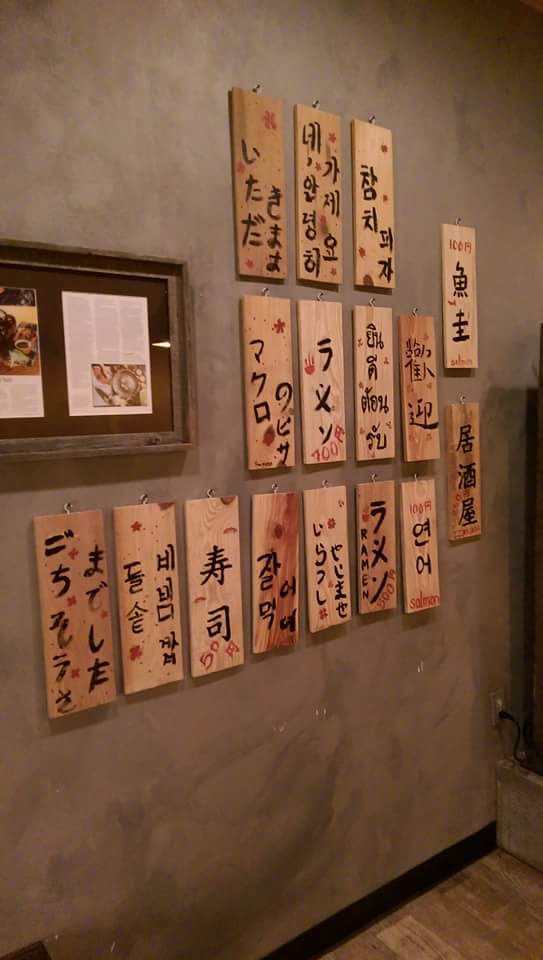 いただ
きます
네, 안녕히
가제요
참치
피자
100円
魚圭
salmon
マクロ
のピサ
ラメン
700円
ยิน
ดี
ต้อน
รับ
歡迎
居酒屋
ごちそうさ
までした
돌솥
비빔밥
寿司
50円
잘먹
いらっし
ゃいませ
ラメン
RAMEN
500円
100円
연어
salmon